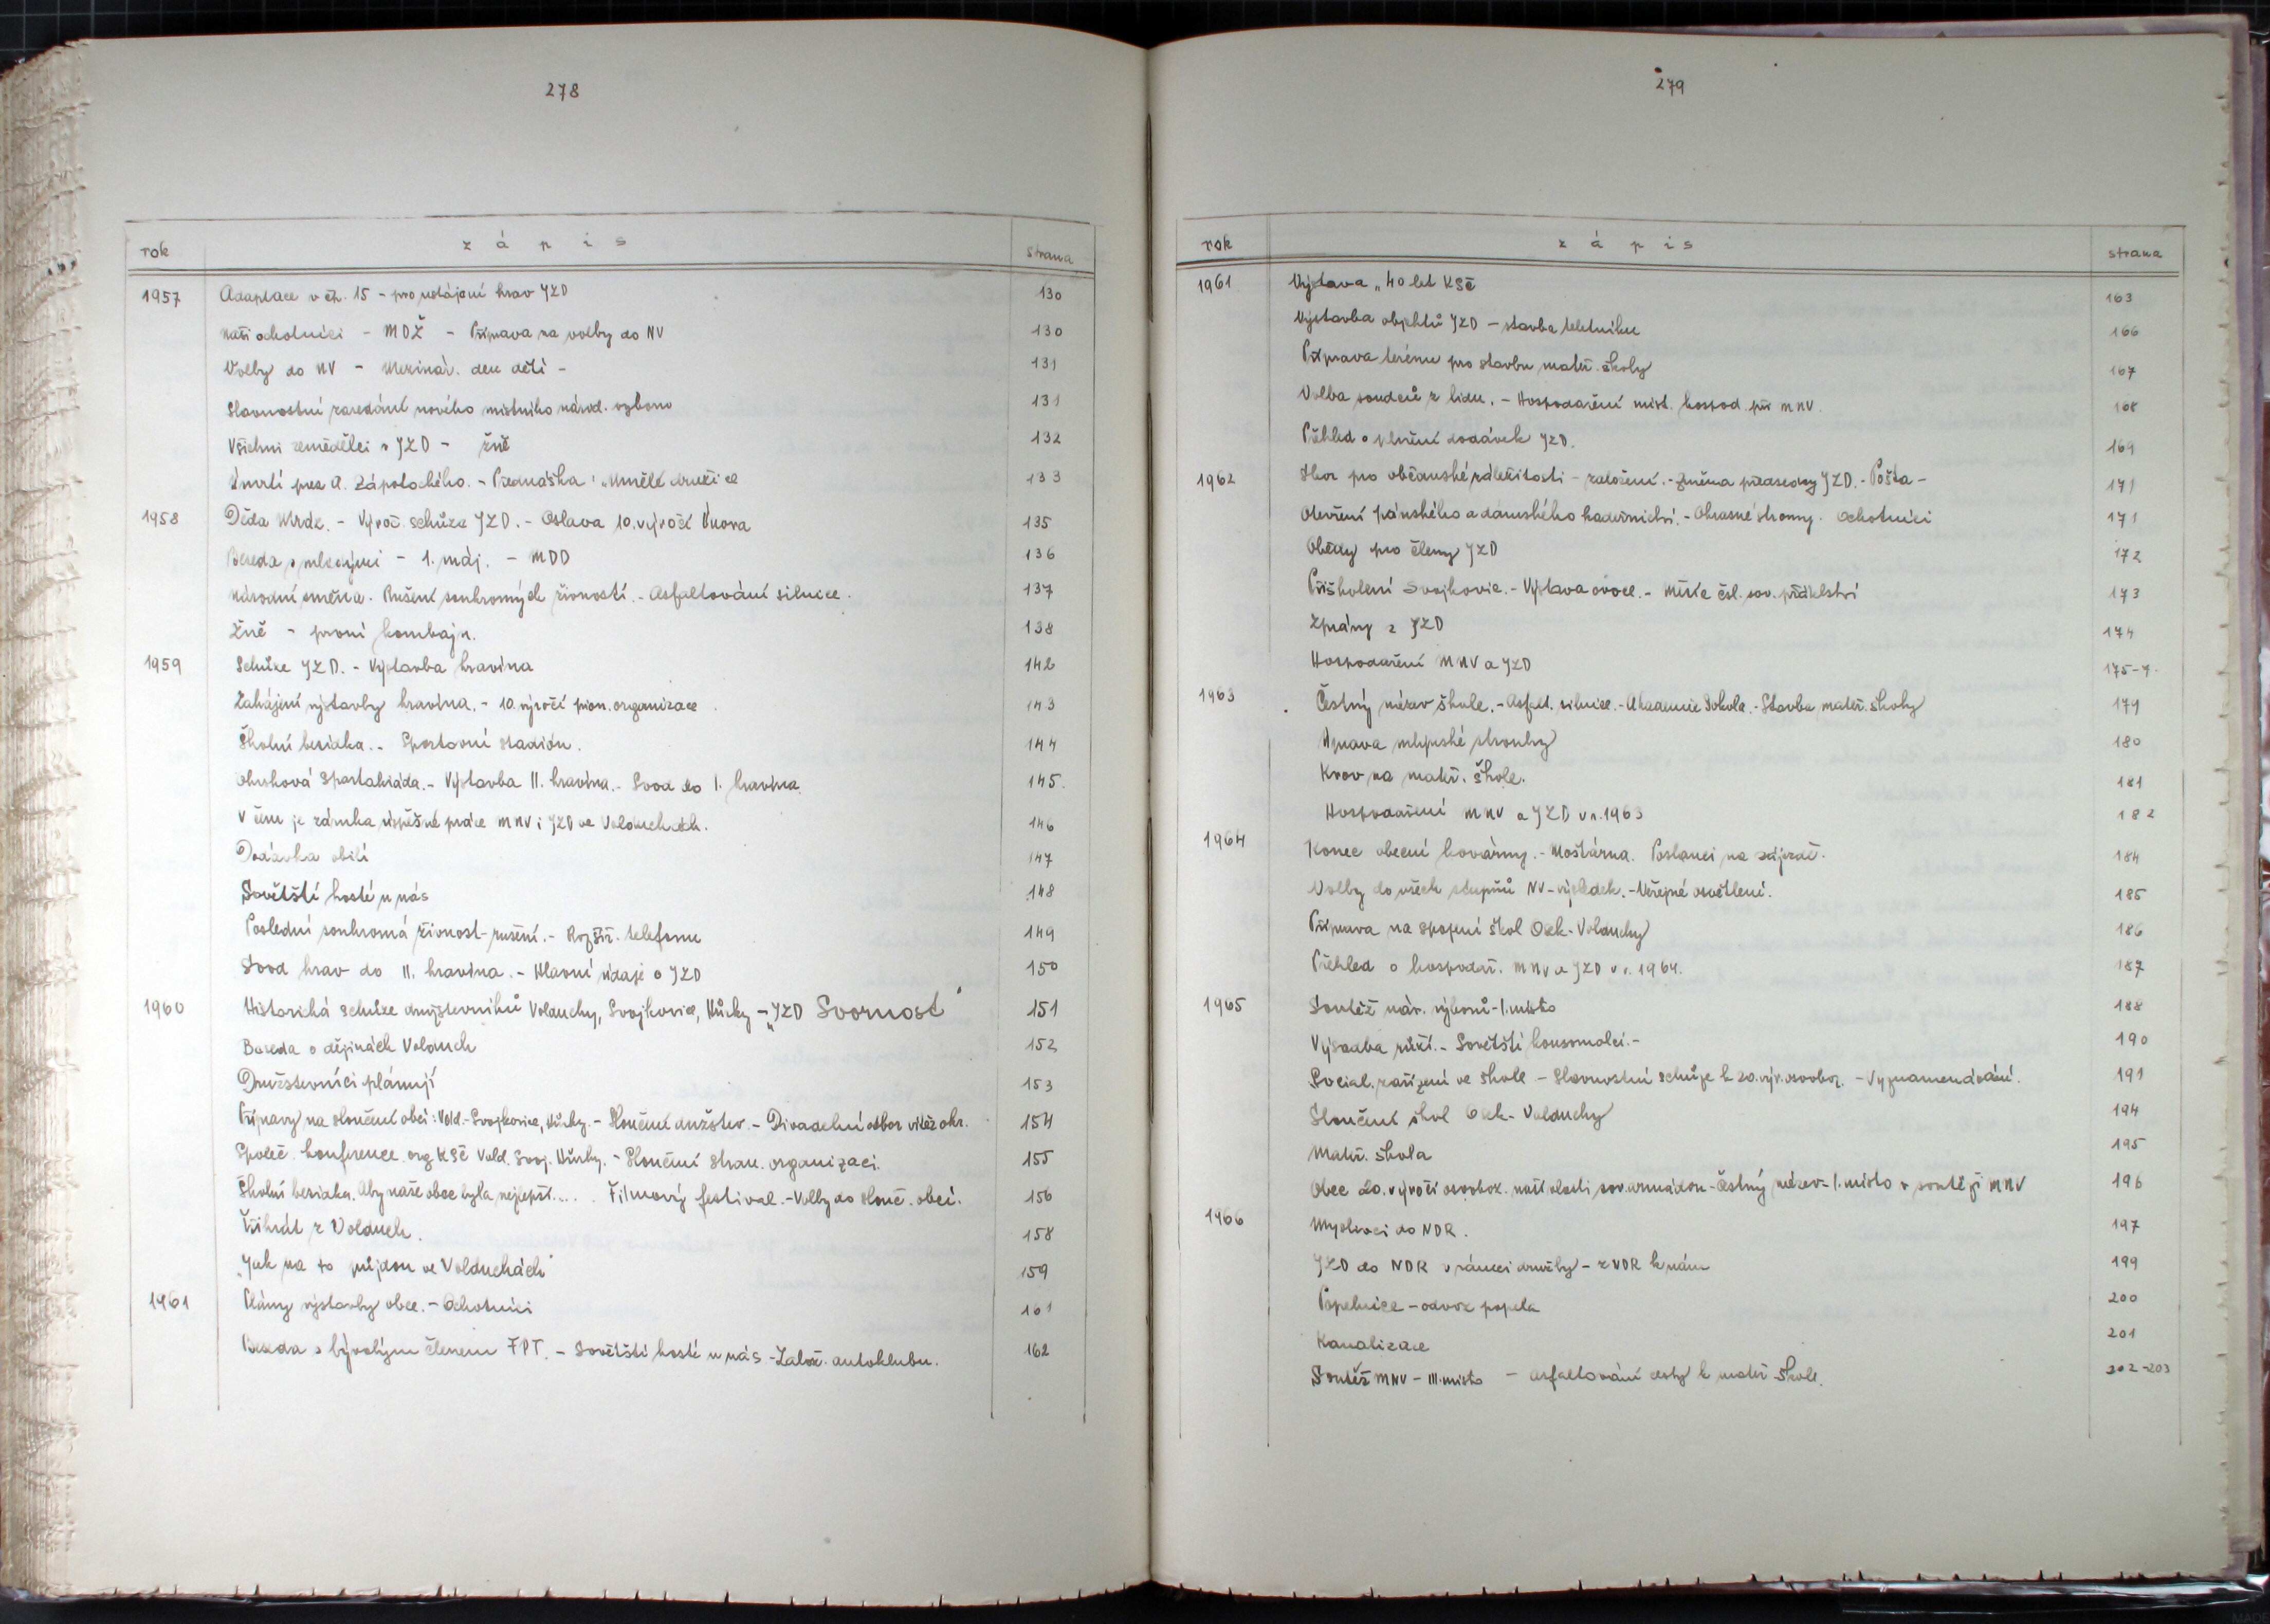 278
rok zápis strana
1957 Adaptace v čp. 15 - pro ustájení krav JZD 130
Naši ochotníci - MDŽ - Příprava na volby do NV 130
Volby do NV - Mezinár. den dětí - 131
Slavnostní zasedání nového místního národ. výboru 131
Všichni zemědělci v JZD - žně 132
Úmrtí pres A. Zápotockého. - Přednáška: „Umělé družice 133
1958 Děda Mrdz. - Výroč. schůze JZD. - Oslava 10. výročí Února 135
Beseda s mladými - 1. máj. - MDD 136
Národní směna. Rušení soukromých živností. - Asfaltování silnice. 137
Žně - první kombajn. 138
1959 Schůze JZD. - Výstavba kravína 142
Zahájení výstavby kravína. - 10. výročí pion. organizace 143
Školní besídka. - Sportovní stadión. 144
Okrsková Spartakiáda. - Výstavba II. kravína. - Svod do I. kravína. 145.
V čem je záruka úspěšné práce MNV i JZD ve Volduchách. 146
Dodávka obilí 147
Sovětští hosté u nás 148
Poslední soukromá živnost - rušení. - Rozšíř. telefonu 149
Svod krav do II. kravína. - Hlavní údaje o JZD 150
1960 Historická schůze družstevníků Volduchy, Svojkovice, Hůrky - „JZD Svornost" 151
Beseda o dějinách Volduch 152
Družstevníci plánují 153
Přípravy na sloučení obcí: Vold.-Svojkovice, Hůrky. - Sloučení družstev. - Divadelní odbor vítěz okr. 154
Společ. konference org KSČ Vold. Svoj. Hůrky. - Sloučení stran. organizací. 155
Školní besídka. Aby naše obec byla nejlepší.... Filmový festival. - Volby do slouč. obcí. 156
Třikrát z Volduch. 158
„Jak na to půjdou ve Volduchách" 159
1961 Plány výstavby obce. - Ochotníci 161
Beseda s bývalým členem FPT. - Sovětští hosté u nás - Založ. autoklubu. 162
279
rok zápis strana
1961 Výstava „40 let KSČ 163
Výstavba objektů JZD - stavba teletníku 166
Příprava terénu pro stavbu mateř. školy 167
Volba soudců z lidu. - Hospodaření míst. hospod. při MNV. 168
Přehled o plnění dodávek JZD. 169
1962 Sbor pro občanské záležitosti - založení. - Změna předsedy JZD. - Pošta - 171
Otevření pánského a dámského kadeřnictví. - Okrasné stromy. Ochotníci 171
Obědy pro členy JZD 172
Přiškolení Svojkovic. - Výstava ovoce. - Měsíc čsl. sov. přátelství 173
Zprávy z JZD 174
Hospodaření MNV a JZD 175-7.
1963 Čestný název škole. - Asfalt. silnice. - Akademie Sokola. - Stavba mateř. školy 179
Úprava mlýnské strouhy 180
Krov na mateř. škole. 181
Hospodaření MNV a JZD v r. 1963 182
1964 Konec obecní kovárny. - Moštárna. Poslanci na zájezdě. 184
Volby do všech stupňů NV - výsledek. - Veřejné osvětlení. 185
Příprava na spojení škol Osek - Volduchy 186
Přehled o hospodař. MNV a JZD v r. 1964. 187
1965 Soutěž nár. výborů - I. místo 188
Výsadba růží. - Sovětští komsomolci. - 190
Social. zařízení ve škole - Slavnostní schůze k 20. výr. osvoboz. - Vyznamenávání. 191
Sloučení škol Osek - Volduchy 194
Mateř. škola 195
Obec 20. výročí osvoboz. naší vlasti sov. armádou - Čestný název - I. místo v soutěži MNV 196
1966 Myslivci do NDR. 197
JZD do NDR v rámci družby - z NDR k nám 199
Popelnice - odvoz popela 200
Kanalizace 201
Soutěž MNV - III. místo - asfaltování cesty k mateř škole. 202-203